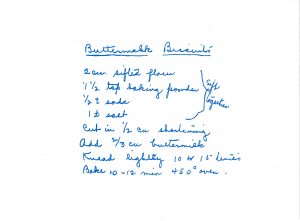 Buttermilk Biscuits
2 cu sifted flour
1 1/2 tsp baking powder
1/2 t soda
1 t salt
Sift together
Cut in 1/2 cu shortening
Add 2/3 cu buttermilk
Knead lightly 10 or 15 times
Bake 10-12 min 450° oven.